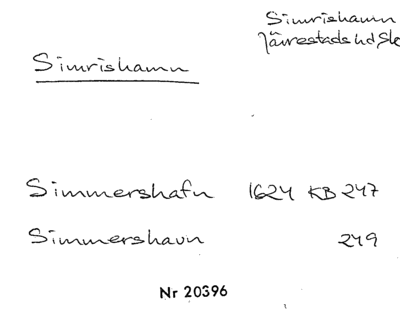 Simrishamn
Järrestads hd, Sk
Simrishamn
Simmershafn 1624 KB 247
Simmershavn 249
Nr 20396